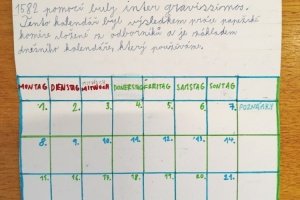 1582 pomocí buly inter gravissimos.
Tento kalendář byl výsledkem práce papežské
komise složené z odborníků a je základem
dnešního kalendáře, který používáme.
MONTAG DIENSTAG MITTWOCH DONNERSTAG FREITAG SAMSTAG SONTAG
1. 2. 3. 4. 5. 6. 7. POZNÁMKY
8. 9. 10. 11. 12. 13. 14.
15. 16. 17. 18. 19. 20. 21.